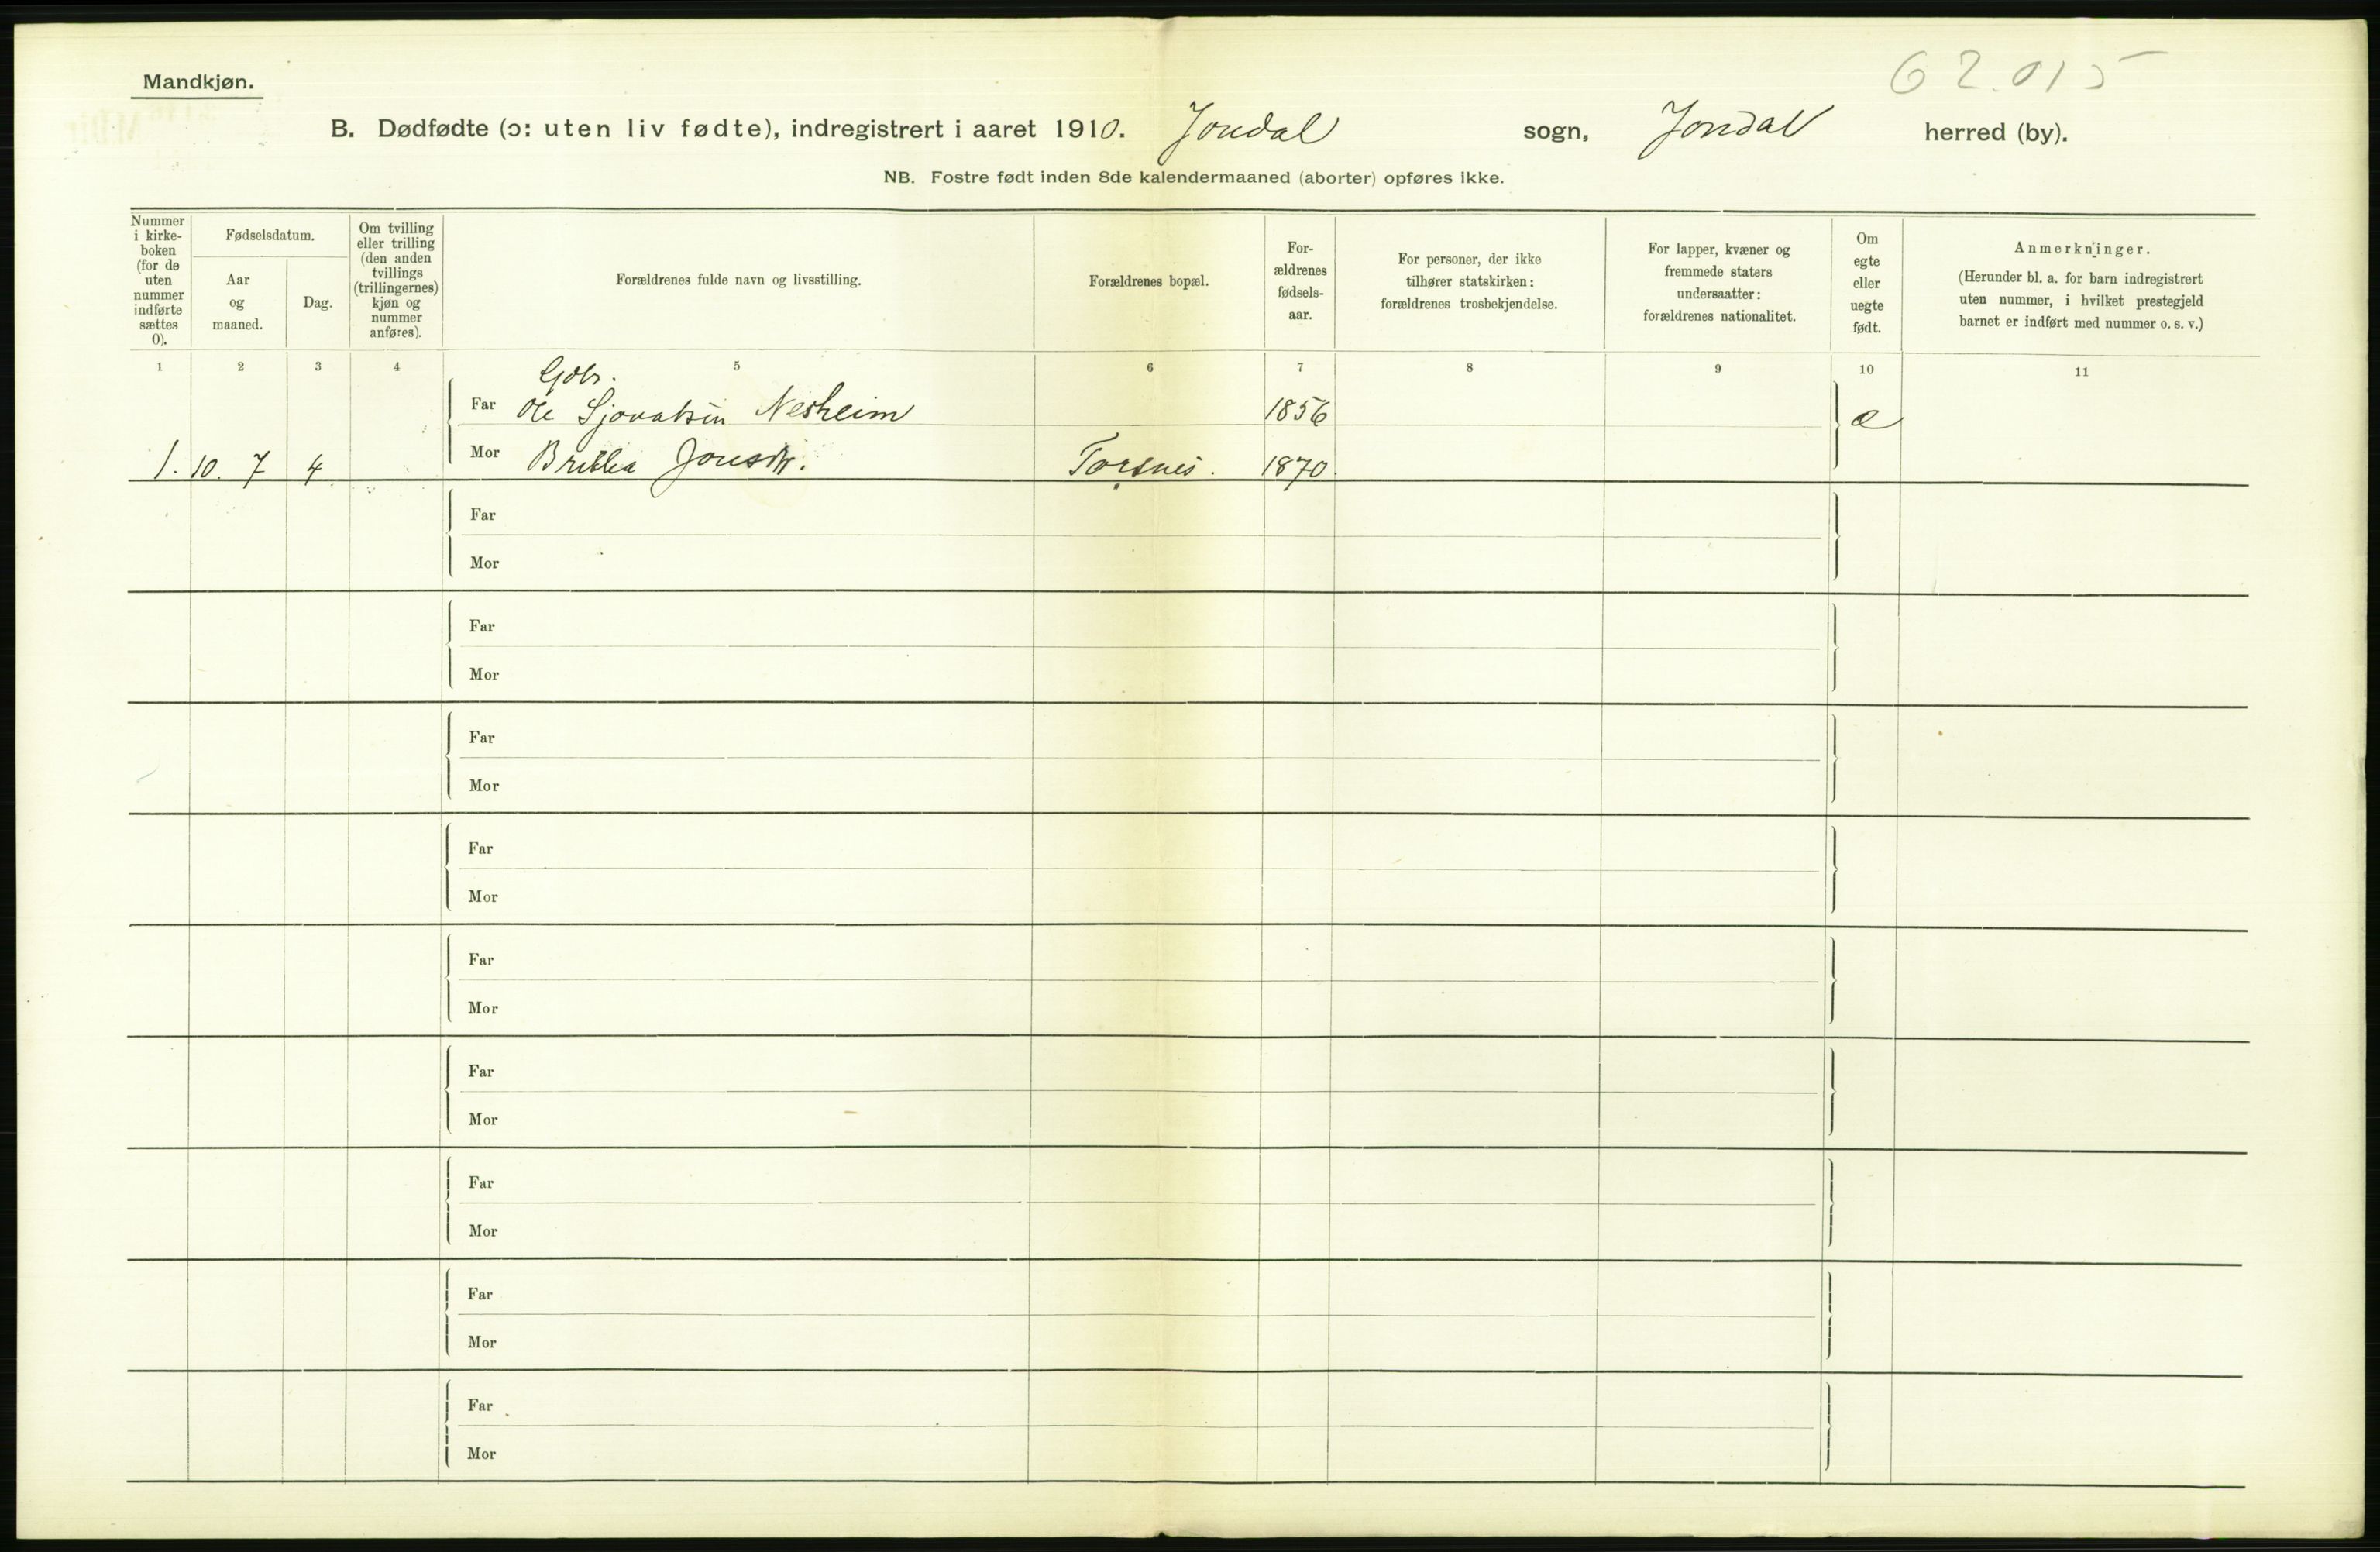 62.015
Mandkjøn.
B. Dødfødte (ɔ: uten liv fødte), indregistrert i aaret 1910. Jondal sogn, Jondal herred (by).
NB. Fostre født inden 8de kalendermaaned (aborter) opføres ikke.
Nummer
i kirke-
boken
(for de
uten
nummer
indførte
sættes
0).
Fødselsdatum.
Aar
og
maaned.
Dag.
Om tvilling
eller trilling
(den anden
tvillings
(trillingernes)
kjøn og
nummer
anføres).
Forældrenes fulde navn og livsstilling.
Forældrenes bopæl.
For-
ældrenes
fødsels-
aar.
For personer, der ikke
tilhører statskirken:
forældrenes trosbekjendelse.
For lapper, kvæner og
fremmede staters
undersaatter:
forældrenes nationalitet.
Om
egte
eller
uegte
født.
Anmerkninger.
(Herunder bl. a. for barn indregistrert
uten nummer, i hvilket prestegjeld
barnet er indført med nummer o. s. v.)
1 2 3 4 5 6 7 8 9 10 11
Gbr.
Far Ole Sjovatsen Nesheim 1856 e
1. 10. 7 4 Mor Britha Jonsdtr. Torsnes. 1870.
Far
Mor
Far
Mor
Far
Mor
Far
Mor
Far
Mor
Far
Mor
Far
Mor
Far
Mor
Far
Mor